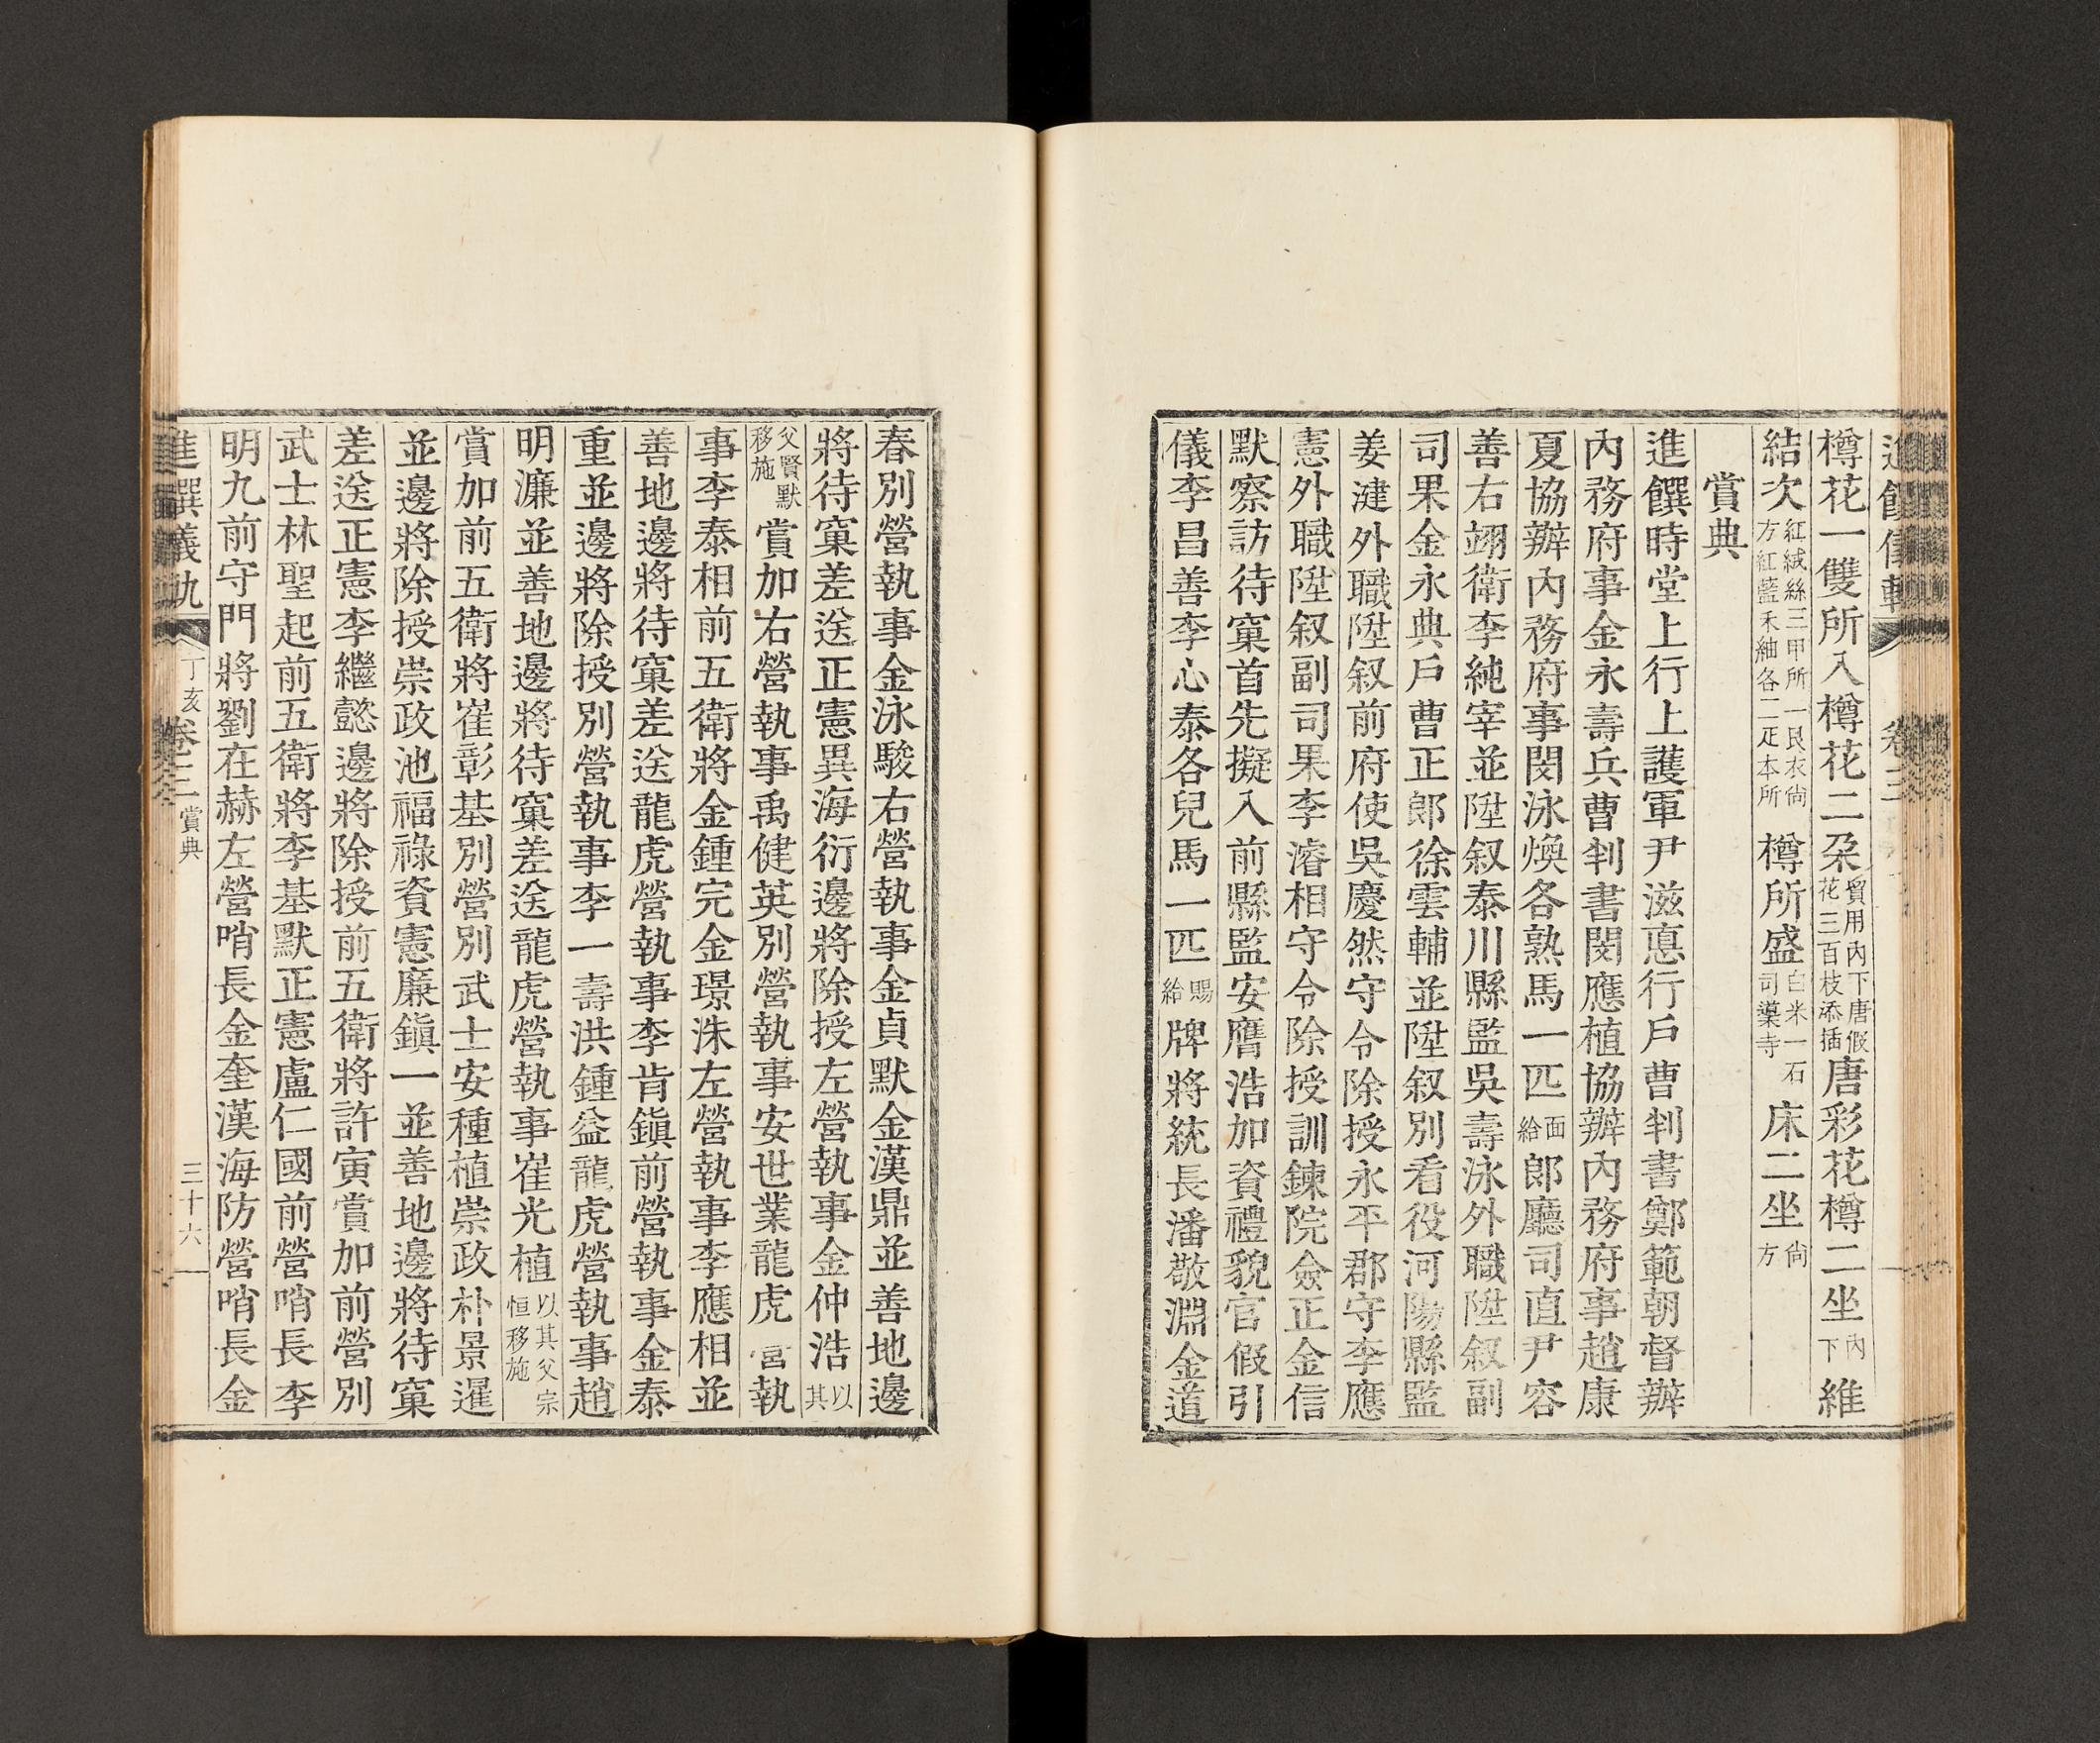 樽花一雙所入樽花二朶貿用內下唐假花三百枝添揷唐彩花樽二坐內下維
結次紅絨絲三甲所一艮衣尙方紅藍禾紬各二疋本所樽所盛白米一石司䆃寺床二坐尙方
賞典
進饌時堂上行上護軍尹滋悳行戶曹判書鄭範朝督辦
內務府事金永壽兵曹判書閔應植協辦內務府事趙康
夏協辦內務府事閔泳煥各熟馬一匹面給郎廳司直尹容
善右翊衛李純宰並陞叙泰川縣監吳壽泳外職陞叙副
司果金永典戶曹正郎徐雲輔並陞叙別看役河陽縣監
姜湕外職陞叙前府使吳慶然守令除授永平郡守李應
憲外職陞叙副司果李濬相守令除授訓鍊院僉正金信
默察訪待窠首先擬入前縣監安膺浩加資禮貌官假引
儀李昌善李心泰各兒馬一匹賜給牌將統長潘敬淵金道
春別營執事金泳駿右營執事金貞默金漢鼎並善地邊
將待窠差送正憲異海衍邊將除授左營執事金仲浩以其
父賢默移施賞加右營執事禹健英別營執事安世業龍虎營執
事李泰相前五衛將金鍾完金璟洙左營執事李應相並
善地邊將待窠差送龍虎營執事李肯鎭前營執事金泰
重並邊將除授別營執事李一壽洪鍾益龍虎營執事趙
明濂並善地邊將待窠差送龍虎營執事崔光植以其父宗恒移施
賞加前五衛將崔彰基別營別武士安種植崇政朴景暹
並邊將除授崇政池福祿資憲廉鎭一並善地邊將待窠
差送正憲李繼懿邊將除授前五衛將許寅賞加前營別
武士林聖起前五衛將李基默正憲盧仁國前營哨長李
明九前守門將劉在赫左營哨長金奎漢海防營哨長金
進饌儀軌 丁亥 卷三 賞典 三十六